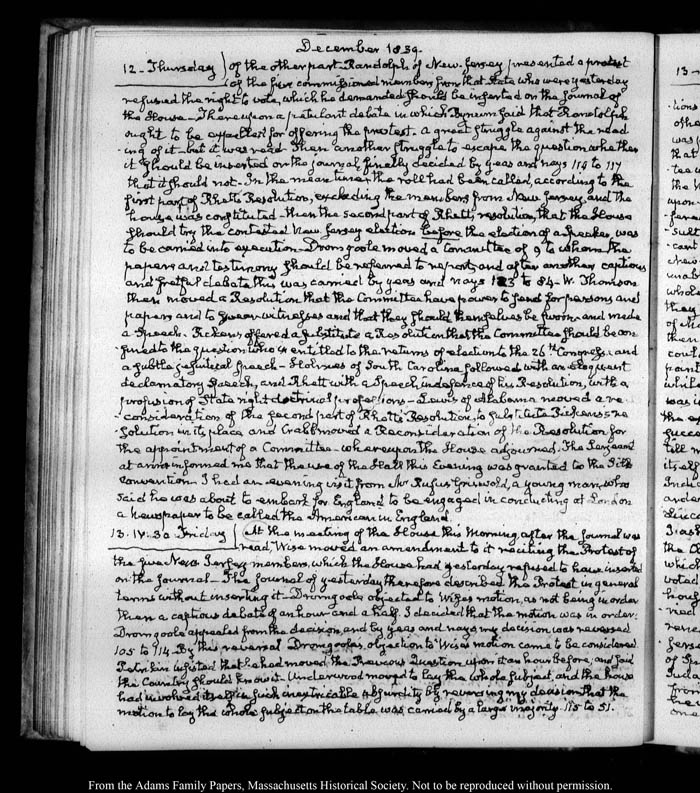 December 1839.
12. Thursday of the other part. Randolph of New-Jersey presented a protest
of the five commissioned members from that State who were yesterday
refused the right to vote, which he demanded should be inserted on the Journal of
the House. Thereupon a petulant debate in which Bynum said that Randolph
ought to be expelled for offering the protest. a great struggle against the read
ing of it but it was read. Then another struggle to escape the question whether
it should be inserted on the journal, finally decided by yeas and nays 114 to 117
that it should not. In the mean time the roll had been called, according to the
first part of Rhett's Resolution, excluding the members from New Jersey, and the
house was constituted. then the second part of Rhett's resolution, that the House
should try the contested New Jersey election before the election of a Speaker, was
to be carried into execution. Dromgoole moved a Committee of 9 to whom the
papers and testimony should be referred to report, and after another captious
and fretful debate this was carried by yeas and nays 123 to 84. W. Thomson
then moved a Resolution that the Committee have power to send for persons and
papers and to swear witnesses and that they should themselves be sworn and made
a Speech. Pickens offered a substitute a Resolution that the Committee should be con
fined to the question who is entitled to the returns of election to the 26th Congress: and
a subtle jesuitical speech. Holmes of South Carolina followed with an eloquent
declamatory speech, and Rhett with a speech in defence of his Resolution, with a
profusion of State right doctrinal professions. Lewis of Alabama moved a re
consideration of the second part of Rhett's Resolution, to substitute Pickens's re
solution in its place and Crabb moved a Reconsideration of the Resolution for
the appointment of a Committee. whereupon the House adjourned. The Serjeant
at arms informed me that the use of the Hall this Evening was granted to the Silk
convention. I had an evening visit from Mr Rufus Griswold, a young man, who
said he was about to embark for England to be engaged in conducting at London
a newspaper to be called the American in England.
13. IV:30. Friday At the meeting of the House this Morning, after the Journal was
read, Wise moved an amendment to it reciting the Protest of
the five New Jersey members, which the House had yesterday refused to have inserted
on the Journal. The Journal of yesterday therefore described the Protest in general
terms without inserting it. Dromgoole objected to Wise's motion, as not being in order
Then a captious debate of an hour and a half. I decided that the motion was in order.
Dromgoole appealed from the decision, and by yeas and nays my decision was reversed
105 to 114. By this reversal Dromgoole's objection to Wise's motion came to be considered.
Petrikin insisted that he had moved the Previous Question upon it an hour before, and said
the Country should know it. Underwood moved to lay the whole subject, and the house
had involved itself in such inextricable absurdity by reversing my decision that the
motion to lay the whole subject on the table was carried by a large majority. 115 to 51.
13
From the Adams Family Papers, Massachusetts Historical Society. Not to be reproduced without permission.